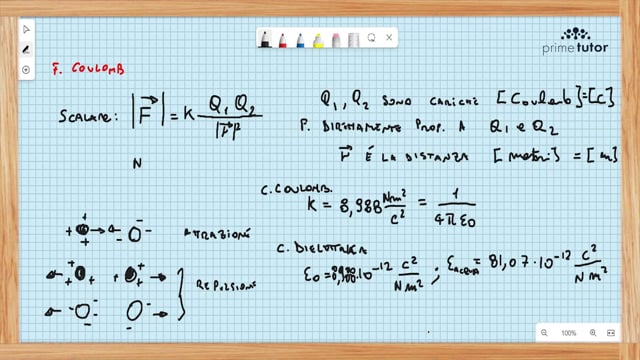 primetutor
F. COULOMB
SCALARE: |F⃗| = K Q₁ Q₂ / |r⃗|²
Q₁, Q₂ SONO CARICHE [Coulomb]=[C]
F. DIRETTAMENTE PROP. A Q₁ e Q₂
N
r⃗ É LA DISTANZA [metri] = [m]
C. COULOMB.
K = 8,988 Nm²/C² = 1/4πε₀
ATTRAZIONE
C. DIELETTRICA
ε₀ = ·10⁻¹² C²/Nm² ; ε ACQUA = 81,07·10⁻¹² C²/Nm²
REPULSIONE
100%